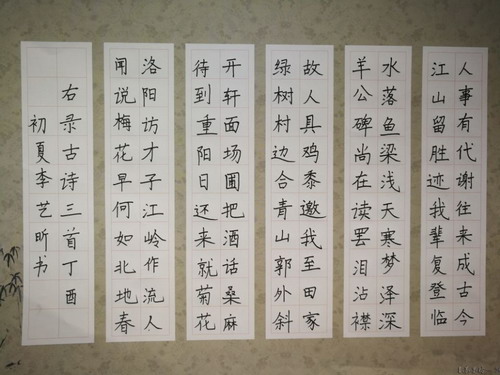 人事有代谢往来成古今
江山留胜迹我辈复登临
水落鱼梁浅天寒梦泽深
羊公碑尚在读罢泪沾襟
故人具鸡黍邀我至田家
绿树村边合青山郭外斜
开轩面场圃把酒话桑麻
待到重阳日还来就菊花
洛阳访才子江岭作流人
闻说梅花早何如北地春
右录古诗三首丁酉
初夏李艺昕书